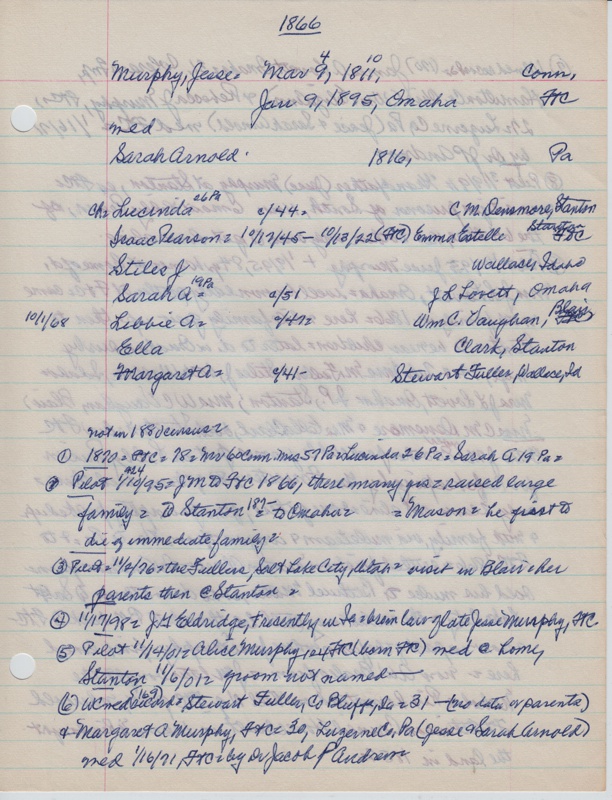 1866
Murphy, Jesse = Mar 9, 4 1811, 10 Conn,
Jan 9, 1895, Omaha FtC
med
Sarah Arnold 1816, Pa
Ch = Lucinda 26 Pa c/44 = C M Densmore, Stanton
Isaac Pearson = 10/17/45 – 10/13/22 (FtC) Emma Estelle Stanton FtC
Stiles J Wallace, Idaho
Sarah A = 19 Pa c/51 J L Lovett, Omaha
10/1/68 Libbie A = c/47 = Wm C. Vaughan, Blair FtC
Ella Clark, Stanton
Margaret A = c/41 – Stewart Fuller, Wallace, Id
not in 1880 census =
① 1870 = FtC = 78 = NY 60 Conn, Mrs 57 Pa = Lucinda 26 Pa = Sarah A 19 Pa =
② Pilot 1/10/95 = J M to FtC 1866, there many yrs = raised large
family = to Stanton 187– = to Omaha = = Mason = he first to
die of immediate family =
③ Pilot = 11/2/76 = the Fullers, Salt Lake City, Utah = visit in Blair = her
parents then @ Stanton =
④ 11/17/98 = J. H Eldridge, recently in Ia = bro in law of late Jesse Murphy, FtC
⑤ Pilot 11/14/01 = Alice I Murphy, FtC (born FtC) med @ home,
Stanton 11/6/01 = groom not named
⑥ WC med records = (169) Stewart Fuller, Co Bluffs, Ia = 31 – (no data of parents)
+ Margaret A Murphy, FtC = 30, Luzerne Co, Pa (Jesse & Sarah Arnold)
med 1/16/71, FtC = by Dr Jacob P Andrew